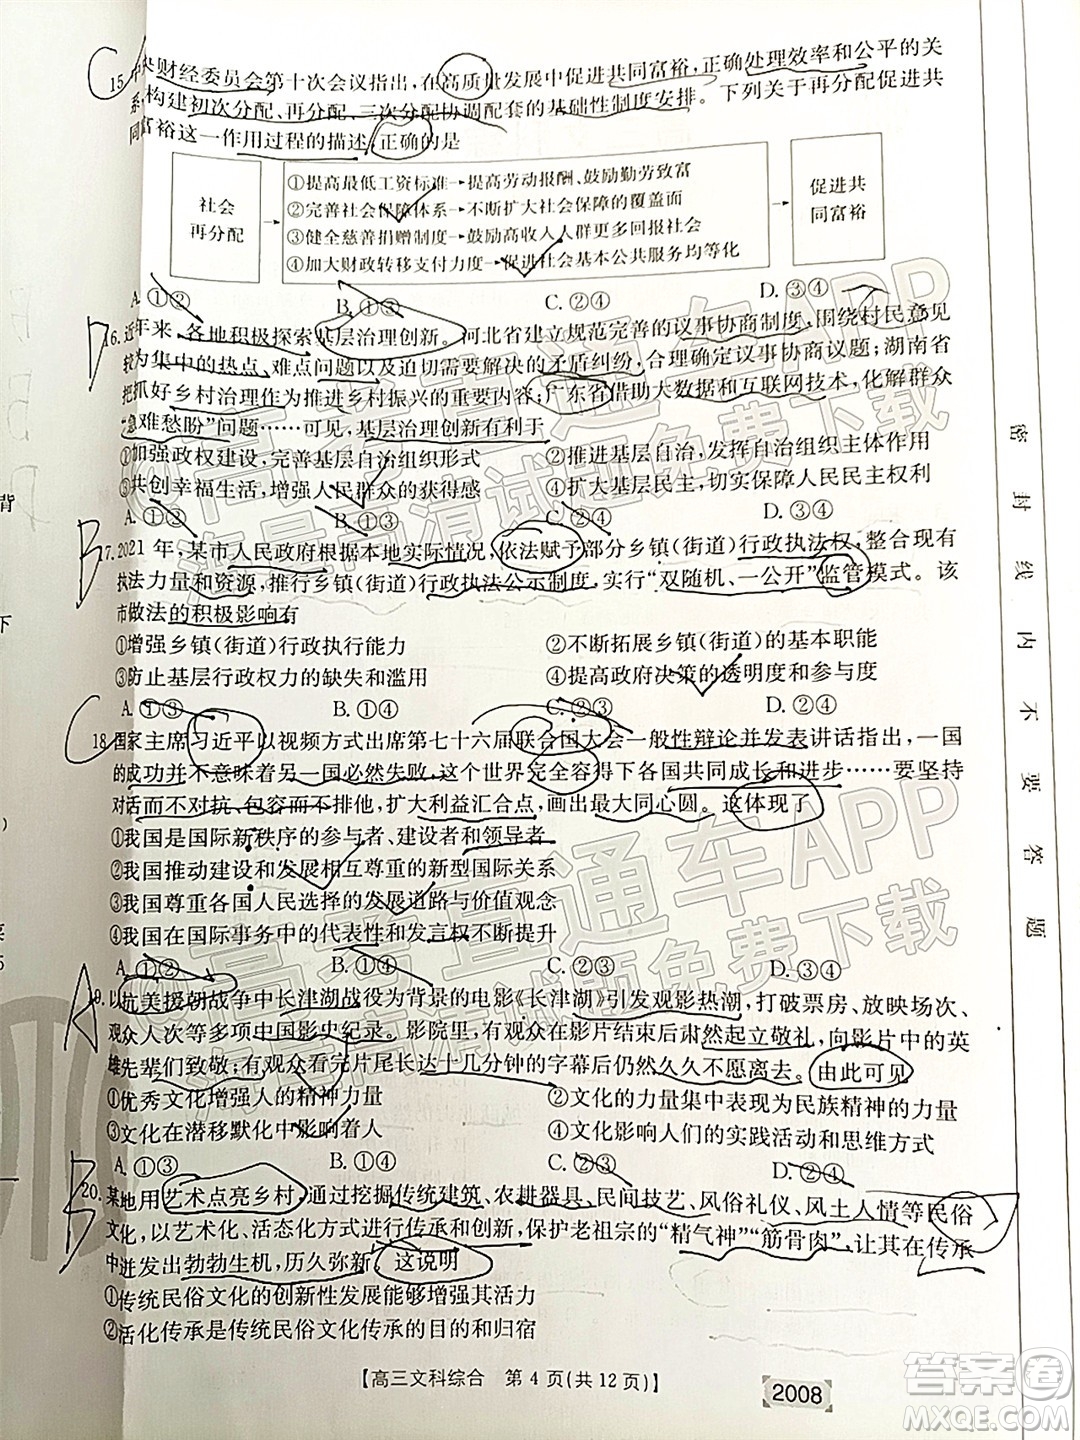 C
15.中央财经委员会第十次会议指出,在高质量发展中促进共同富裕,正确处理效率和公平的关
系,构建初次分配、再分配、三次分配协调配套的基础性制度安排。下列关于再分配促进共
同富裕这一作用过程的描述,正确的是
社会
再分配
①提高最低工资标准→提高劳动报酬、鼓励勤劳致富
②完善社会保障体系→不断扩大社会保障的覆盖面
③健全慈善捐赠制度→鼓励高收入人群更多回报社会
④加大财政转移支付力度→促进社会基本公共服务均等化
促进共
同富裕
A.①② B.①③ C.②④ D.③④
D
16.近年来,各地积极探索基层治理创新。河北省建立规范完善的议事协商制度,围绕村民意见
为集中的热点、难点问题以及迫切需要解决的矛盾纠纷,合理确定议事协商议题;湖南省
把抓好乡村治理作为推进乡村振兴的重要内容;广东省借助大数据和互联网技术,化解群众
“急难愁盼”问题……可见,基层治理创新有利于
①加强政权建设,完善基层自治组织形式 ②推进基层自治,发挥自治组织主体作用
③共创幸福生活,增强人民群众的获得感 ④扩大基层民主,切实保障人民民主权利
A.①② B.①③ C.②④ D.③④
B
17.2021年,某市人民政府根据本地实际情况,依法赋予部分乡镇(街道)行政执法权,整合现有
执法力量和资源,推行乡镇(街道)行政执法公示制度,实行“双随机、一公开”监管模式。该
市做法的积极影响有
①增强乡镇(街道)行政执行能力 ②不断拓展乡镇(街道)的基本职能
③防止基层行政权力的缺失和滥用 ④提高政府决策的透明度和参与度
A.①③ B.①④ C.②③ D.②④
C
18.国家主席习近平以视频方式出席第七十六届联合国大会一般性辩论并发表讲话指出,一国
的成功并不意味着另一国必然失败,这个世界完全容得下各国共同成长和进步……要坚持
对话而不对抗、包容而不排他,扩大利益汇合点,画出最大同心圆。这体现了
①我国是国际新秩序的参与者、建设者和领导者
②我国推动建设和发展相互尊重的新型国际关系
③我国尊重各国人民选择的发展道路与价值观念
④我国在国际事务中的代表性和发言权不断提升
A.①② B.①④ C.②③ D.③④
A
19.以抗美援朝战争中长津湖战役为背景的电影《长津湖》引发观影热潮,打破票房、放映场次、
观众人次等多项中国影史纪录。影院里,有观众在影片结束后肃然起立敬礼,向影片中的英
雄先辈们致敬;有观众看完片尾长达十几分钟的字幕后仍然久久不愿离去。由此可见
①优秀文化增强人的精神力量 ②文化的力量集中表现为民族精神的力量
③文化在潜移默化中影响着人 ④文化影响人们的实践活动和思维方式
A.①③ B.①④ C.②③ D.②④
B
20.某地用艺术点亮乡村,通过挖掘传统建筑、农耕器具、民间技艺、风俗礼仪、风土人情等民俗
文化,以艺术化、活态化方式进行传承和创新,保护老祖宗的“精气神”“筋骨肉”,让其在传承
中迸发出勃勃生机,历久弥新。这说明
①传统民俗文化的创新性发展能够增强其活力
②活化传承是传统民俗文化传承的目的和归宿
【高三文科综合 第4页(共12页)】
2008
密封线内不要答题
高考直通车APP
海量高清试题免费下载
高考直通车APP
海量高清试题免费下载
答案圈
MXQE.COM